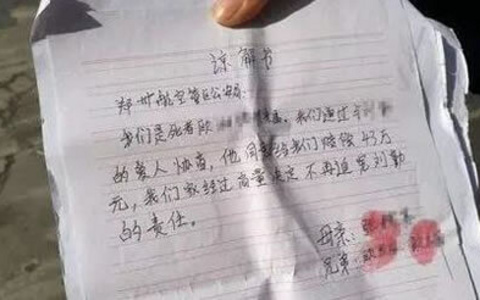 谅解书
郑州航空港区公安局:
我们是死者欧 我们通过
的爱人协商,他同意给我们赔偿43万
元,我们家经过商量决定不再追究刘勤
的责任。
母亲:
兄弟:欧